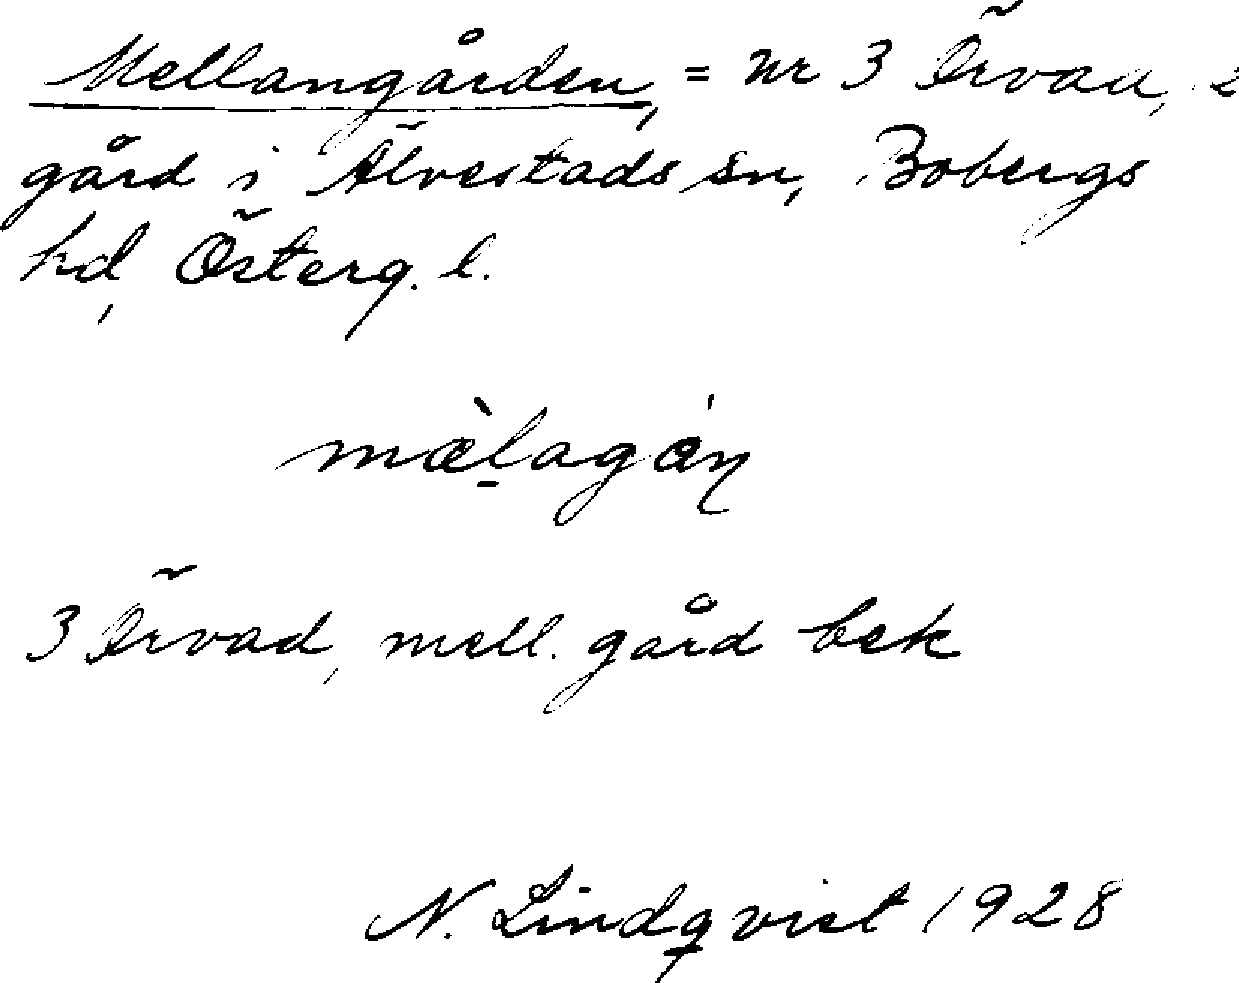 Mellangården, = nr 3 Örvad,
gård i Älvestads sn, Bobergs
hd, Österg. l.
mæ̀lagán
3 Örvad, mell. gård bek
N. Lindqvist 1928